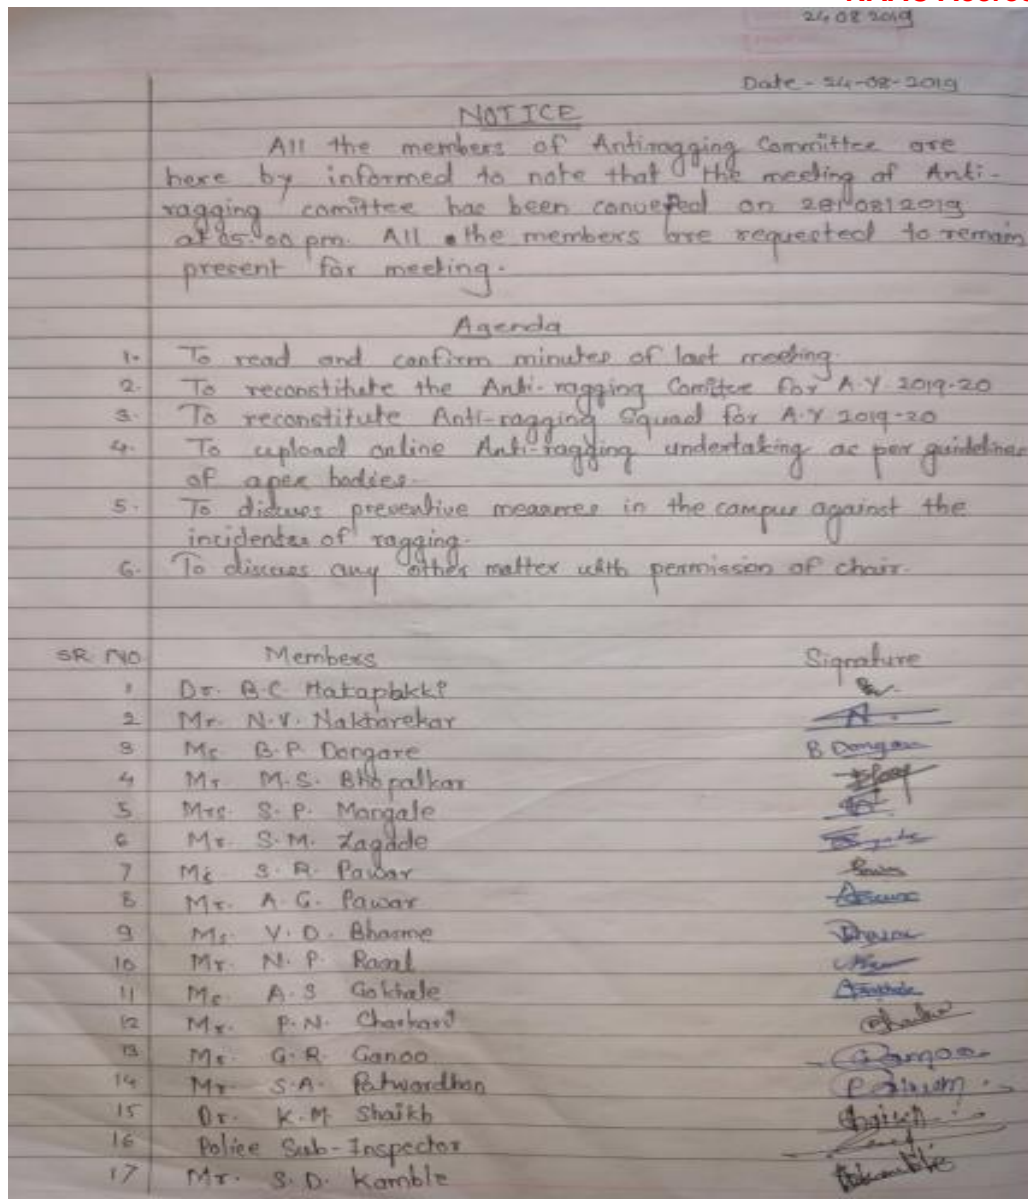 24 08 2019
Date - 24-08-2019
NOTICE
All the members of Antiragging Committee are
here by informed to note that the meeting of Anti-
ragging comittee has been on
at 05:00 pm. All the members are requested to remain
present for meeting.
Agenda
1. To read and confirm minutes of last meeting.
2. To reconstitute the Anti-ragging Comittee for A.Y 2019-20
3. To reconstitute Anti-ragging Squad for A.Y 2019-20
4. To upload online Anti-ragging undertaking as per guidelines
of apex bodies.
5. To discuss preventive measures in the campus against the
incidentes of ragging.
6. To discuss any other matter with permission of chair.
SR. NO. Members Signature
1 Dr. B.C. Hatapakki
2 Mr. N.V. Nakharekar
3 Ms B.P. Dongare B Dongare
4 Mr. M.S. Bhopalkar
5 Mrs. S.P. Mangale
6 Mr. S.M. Zagade
7 Ms S.R. Pawar
8 Mr. A.G. Pawar
9 Ms. V.D. Bhasme
10 Mr. N.P.
11 Ms. A.S Gokhale
12 Mr. P.N.
13 Ms. G.R. Ganoo
14 Mr. S.A. Patwardhan
15 Dr. K.M. Shaikh
16 Police Sub-Inspector
17 Mr. S.D. Kamble